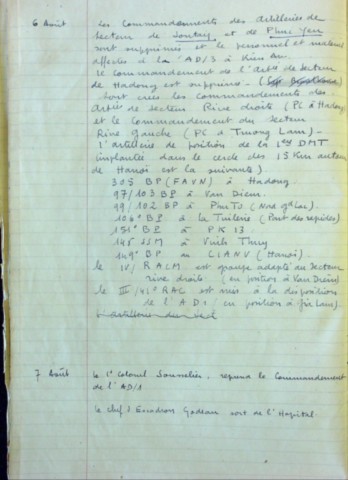 6 Août Les Commandements des Artilleries de
Secteur de Sontay et de Phuc Yen
sont supprimés et le personnel et matériel
affectés à la 'AD/3 à Kien An.
Le Commandement de l'Artie de Secteur
de Hadong est supprimé -
Sont créés les Commandements des
Arties de Secteur Rive droite (PC à Hadong)
et le Commandement du Secteur
Rive Gauche (PC à Truong Lam) -
L'artillerie de position de la 1ère DMT
implantée dans le cercle des 15 Km autour
de Hanoi est la suivante)
305 BP (FAVN) à Hadong.
97/103 BP à Van Dien.
99/102 BP à Phu To (Nord gd lac).
106e BP à la Tuilerie (Pont des rapides)
151e BP à PK 13.
145 SSM à Thuy
149e BP au LIANV (Hanoi).
le IV/ RACM est groupe adapté au Secteur
rive droite. (en position à Van Dien)
le III/41e RAC est mis à la disposition
de l'AD1 (en position à Gia Lam).
7 Août Le Lt Colonel reprend le Commandement
de l'AD/1
Le Chef d'Escadron Gadeau sort de l'Hopital.